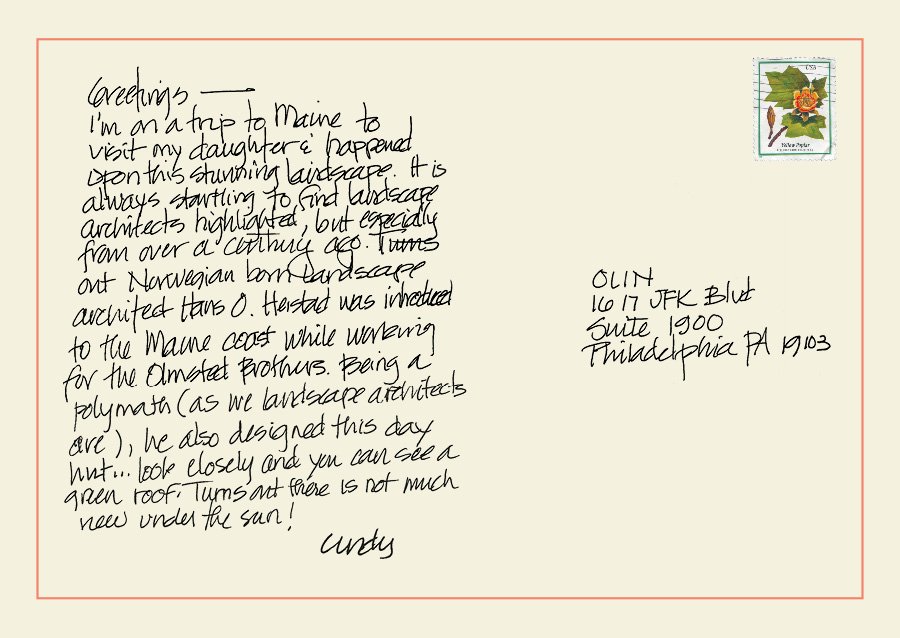 Greetings —
I'm on a trip to Maine to
visit my daughter & happened
upon this stunning landscape. It is
always startling to find landscape
architects highlighted, but especially
from over a century ago. Turns
out Norwegian born Landscape
architect Hans O. Heistad was introduced
to the Maine coast while working
for the Olmsted Brothers. Being a
polymath (as we landscape architects
are), he also designed this day
hut... look closely and you can see a
green roof. Turns out there is not much
new under the sun!
Cindy
USA
Yellow Poplar
OLIN
1617 JFK Blvd
Suite 1900
Philadelphia PA 19103